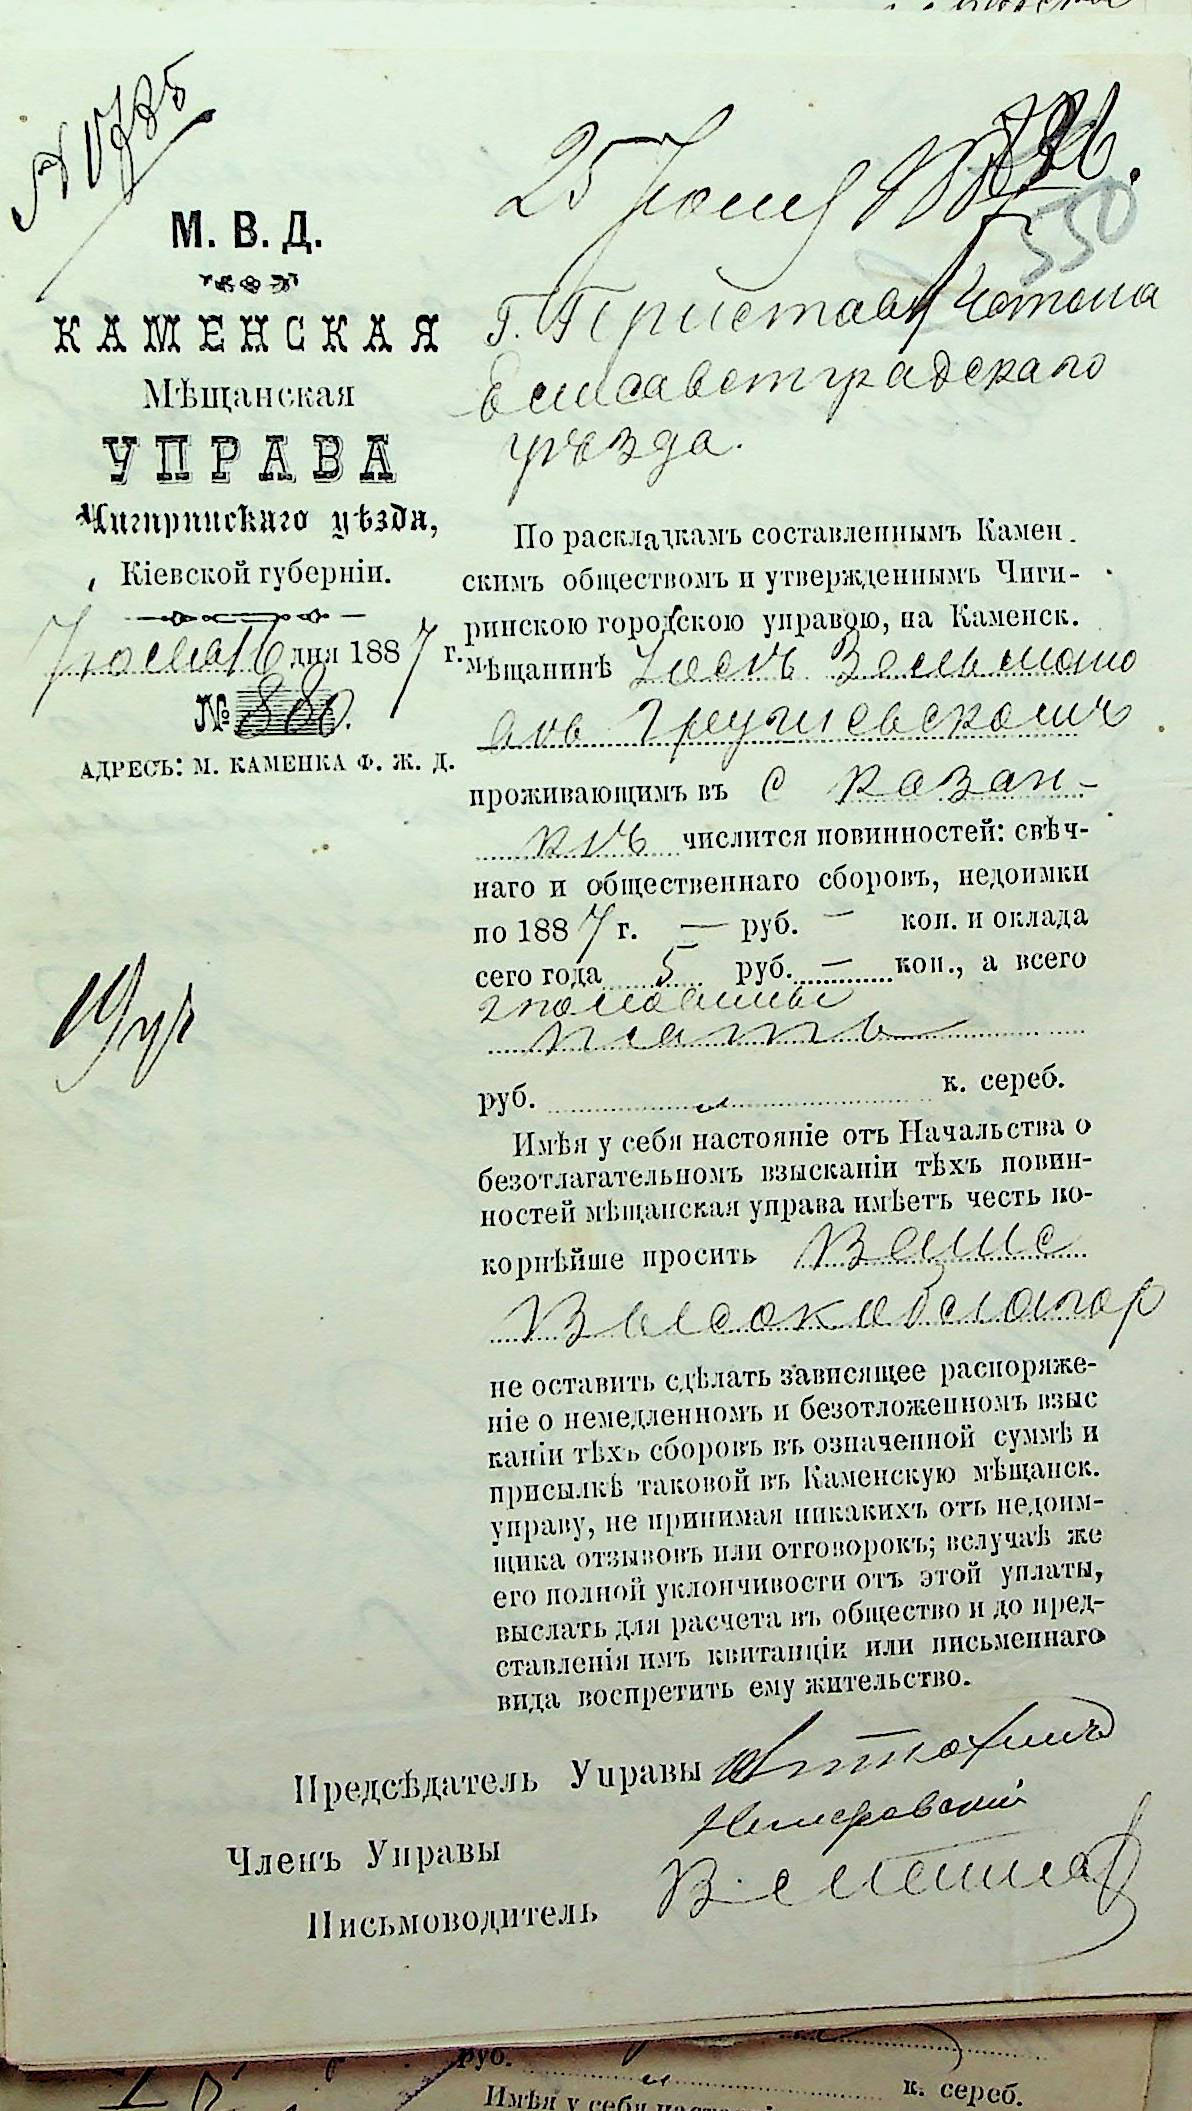 25 Юня
550
М. В. Д.
КАМЕНСКАЯ
Мѣщанская
УПРАВА
Чигиринскаго уѣзда,
Кіевской губерніи.
Юня 16 дня 1887 г.
№ 880.
АДРЕСЪ: М. КАМЕНКА Ф. Ж. Д.
Г. Приставу стана
Елисаветградскаго
уѣзда.
По раскладкамъ составленнымъ Камен
скимъ обществомъ и утвержденнымъ Чиги-
ринскою городскою управою, на Каменск.
мѣщанинѣ
проживающимъ въ С Казан-
кѣ числится повинностей: свѣч-
наго и общественнаго сборовъ, недоимки
по 1887 г. — руб. — коп. и оклада
сего года 5 руб. — коп., а всего
пять
руб. к. сереб.
Имѣя у себя настояніе отъ Начальства о
безотлагательномъ взысканіи тѣхъ повин-
ностей мѣщанская управа имѣетъ честь по-
корнѣйше просить Ваше
Высокоблагор
не оставить сдѣлать зависящее распоряже-
ніе о немедленномъ и безотложенномъ взыс
каніи тѣхъ сборовъ въ означенной суммѣ и
присылкѣ таковой въ Каменскую мѣщанск.
управу, не принимая никакихъ отъ недоим-
щика отзывовъ или отговорокъ; вслучаѣ же
его полной уклончивости отъ этой уплаты,
выслать для расчета въ общество и до пред-
ставленія имъ квитанціи или письменнаго
вида воспретить ему жительство.
Предсѣдатель Управы
Членъ Управы
Письмоводитель
руб. к. сереб.
Имѣя у себя